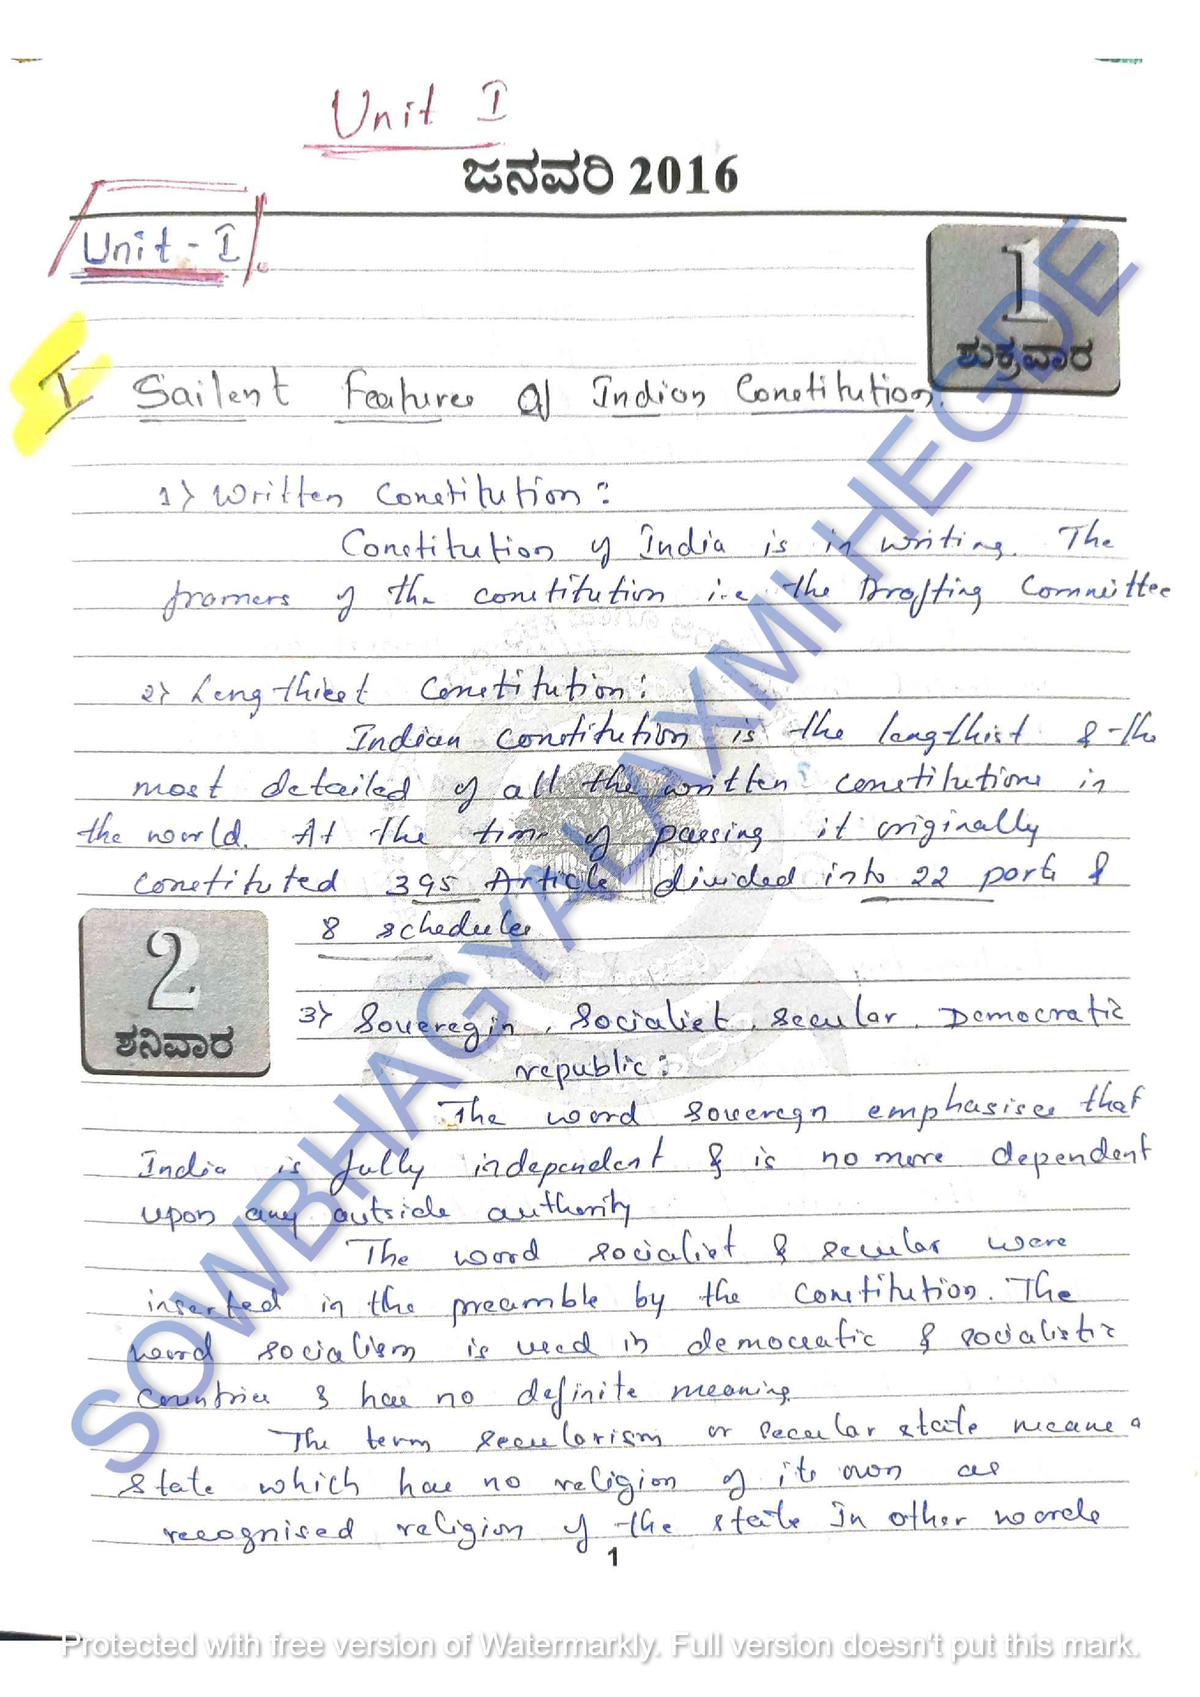 Unit I
ಜನವರಿ 2016
Unit - I
1
ಶುಕ್ರವಾರ
I Sailent Features of Indian Constitution.
1) Written Constitution:
Constitution of India is in writing. The
framers of the constitution i.e the Drafting Committee
2) Lengthiest Constitution:
Indian Constitution is the lengthist & the
most detailed of all the written constitutions in
the world. At the time of passing it originally
constituted 395 Article divided into 22 parts &
8 schedules
2
ಶನಿವಾರ
3) Soveregin, Socialist, Secular, Democratic
republic:
The word soveregn emphasises that
India is fully independent & is no more dependent
upon any outside authority
The word socialist & secular were
inserted in the preamble by the Constitution. The
word socialism is used in democratic & socialistic
Countries & has no definite meaning
The term secularism or secular state means a
state which has no religion of its own as
recognised religion of the state In other words
1
SOWBHAGYALAXMI HEGDE
Protected with free version of Watermarkly. Full version doesn't put this mark.